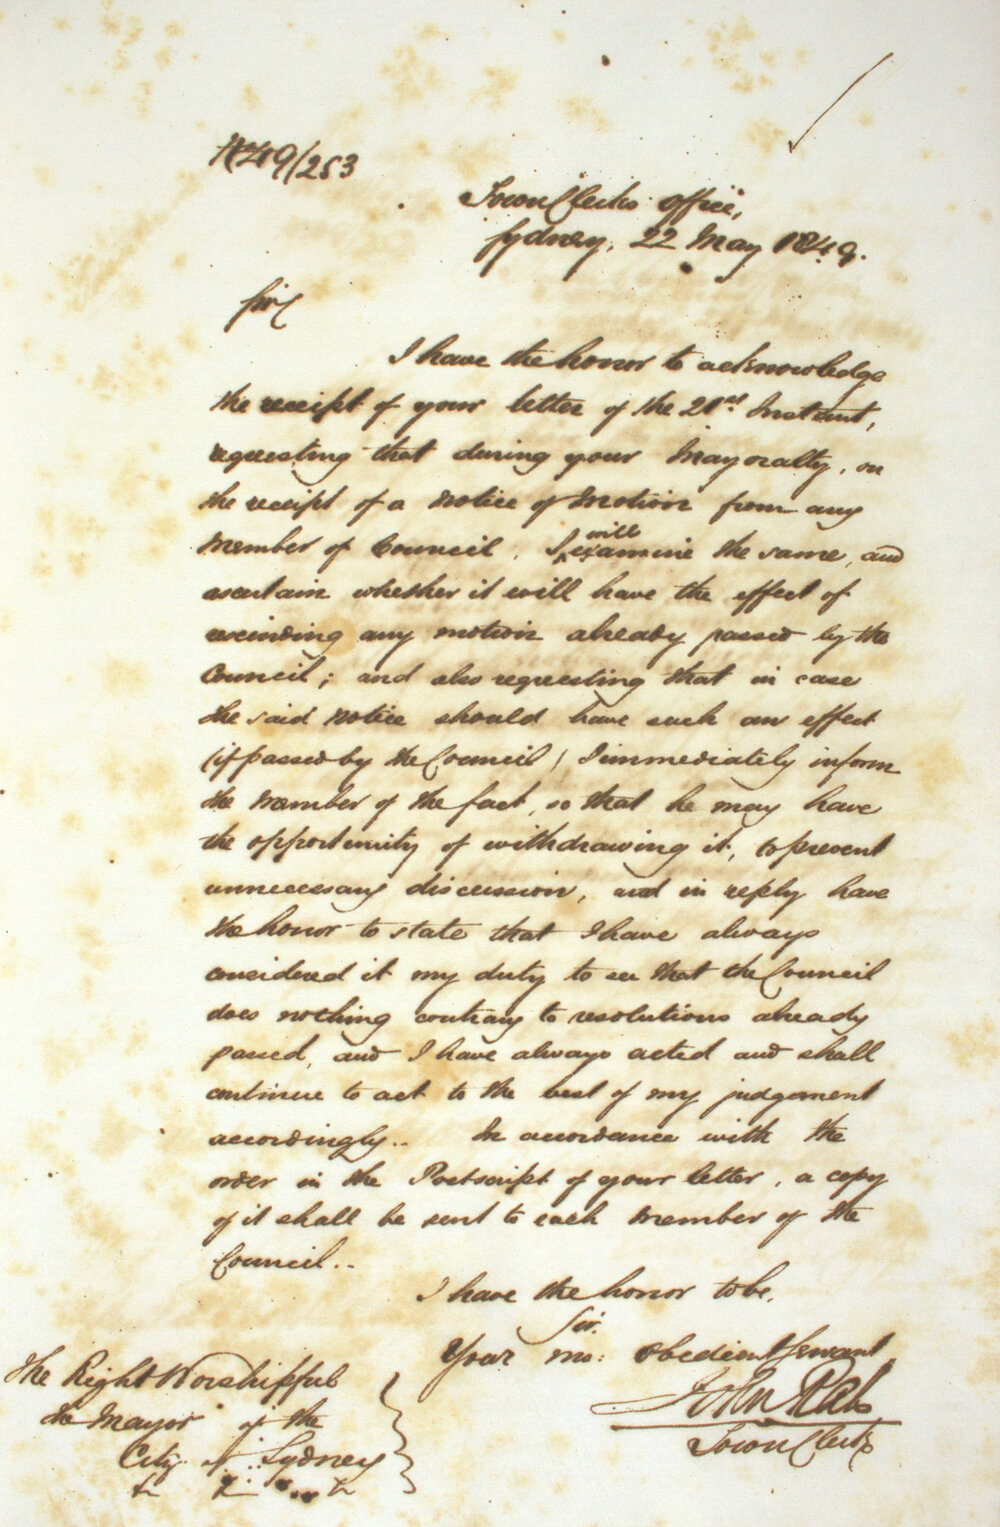 49/253
Town Clerks office,
Sydney, 22 May 1849.
Sir
I have the honor to acknowledge
the receipt of your letter of the 21st Instant,
requesting that during your Mayoralty, on
the receipt of a notice of motion from any
member of Council, I will examine the same, and
ascertain whether it will have the effect of
rescinding any motion already passed by the
Council; and also requesting that in case
the said notice should have such an effect
(if passed by the Council) I immediately inform
the member of the fact, so that he may have
the opportunity of withdrawing it, to prevent
unnecessary discussion, and in reply have
the honor to state that I have always
considered it my duty to see that the Council
does nothing contrary to resolutions already
passed, and I have always acted and shall
continue to act to the best of my judgement
accordingly.. In accordance with the
order in the Postscript of your letter, a copy
of it shall be sent to each member of the
Council..
I have the honor to be,
Sir,
Your mo: obedient Servant
John Rae
Town Clerk
The Right Worshipful
the Mayor of the
City of Sydney